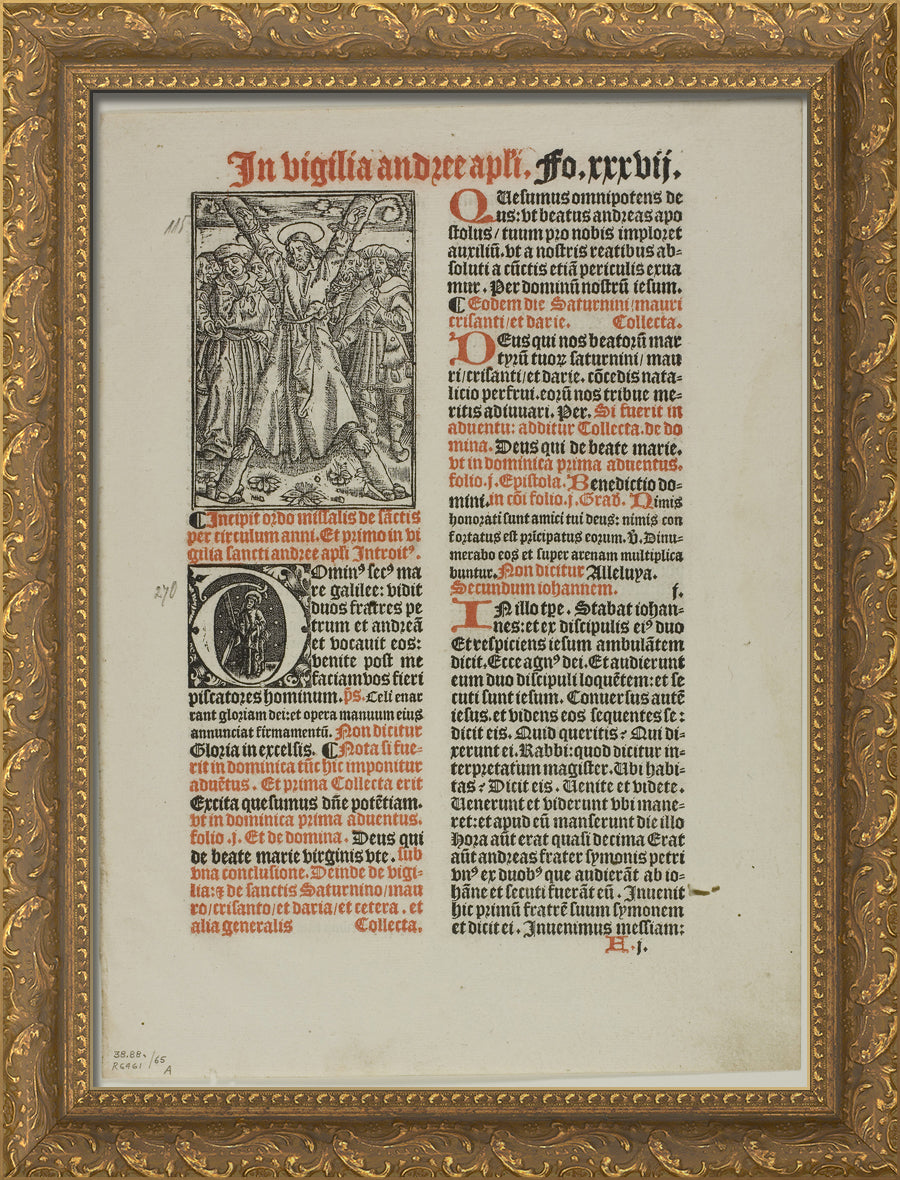 In vigilia andree apl̃i. Fo. xxxvij.
115
¶Incipit ordo missalis de sãctis
per circulum anni. Et primo in vi
gilia sancti andree apl̃i Introitꝰ.
270
DOminꝰ secꝰ ma
re galilee: vidit
duos fratres pe
trum et andreã
et vocauit eos:
venite post me
faciamvos fieri
piscatores hominum. p̃s. Celi enar
rant gloriam dei: et opera manuum eius
annunciat firmamentũ. Non dicitur
Gloria in excelsis. ¶Nota si fue-
rit in dominica tũc hic imponitur
aduẽtus. Et prima Collecta erit
Excita quesumus dñe potẽtiam.
vt in dominica prima aduentus.
folio .j. Et de domina. Deus qui
de beate marie virginis vte. sub
vna conclusione. Deinde de vigi-
lia: ⁊ de sanctis Saturnino/mau
ro/crisanto/et daria/et cetera. et
alia generalis Collecta.
QUesumus omnipotens de
us: vt beatus andreas apo
stolus/tuum pro nobis imploret
auxiliũ. vt a nostris reatibus ab-
soluti a cũctis etiã periculis exua
mur. Per dominũ nostrũ iesum.
¶Eodem die Saturnini/mauri
crisanti/et darie. Collecta.
DEus qui nos beatorũ mar
tyrũ tuoꝝ saturnini/mau
ri/crisanti/et darie. cõcedis nata-
licio perfrui. eorũ nos tribue me-
ritis adiuuari. Per. Si fuerit in
aduentu: additur Collecta. de do
mina. Deus qui de beate marie.
vt in dominica prima aduentus.
folio.j. Epistola. Benedictio do-
mini. in cõi folio.j. Grad. Nimis
honorati sunt amici tui deus: nimis con
fortatus est prīcipatus eorum. ℣. Dinu-
merabo eos et super arenam multiplica
buntur. Non dicitur Alleluya.
Secundum iohannem. j.
IN illo tpe. Stabat iohan-
nes: et ex discipulis eiꝰ duo
Et respiciens iesum ambulãtem
dicit. Ecce agnꝰ dei. Et audierunt
eum duo discipuli loquẽtem: et se
cuti sunt iesum. Conuersus autẽ
iesus. et videns eos sequentes se:
dicit eis. Quid queritis? Qui di-
xerunt ei. Rabbi: quod dicitur in-
terpretatum magister. Ubi habi-
tas? Dicit eis. Uenite et videte.
Uenerunt et viderunt vbi mane-
ret: et apud eũ manserunt die illo
Hora aũt erat quasi decima Erat
aũt andreas frater symonis petri
vnꝰ ex duobꝰ que audierãt ab io-
hãne et secuti fuerãt eũ. Inuenit
hic primũ fratrẽ suum symonem
et dicit ei. Inuenimus messiam:
H.j.
38.88. /65
R6461 A